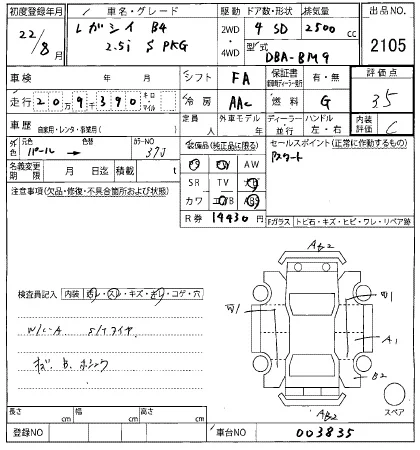 初度登録年月 車名・グレード 駆動 ドア数・形状 排気量 出品NO
22/8月 レガシイ B4 2WD 4 SD 2500 cc
2.5i S PKG 4WD 型式 DBA-BM9 2105
車検 年 月 シフト FA 保証書 有・無 評価点
走行 209390 キロ・マイル 冷房 AAC 燃料 G 35
車歴 自家用・レンタ・事業用( ) 定員 人 外車モデル 年 ディーラー 並行 ハンドル 左・右 内装評価 C
外色 元色 パール → 色替 カラーNO 37J 装備品(純正品に限る) セールスポイント(正常に作動するもの)
名義変更期限 月 日 積載 t PS PW AW
注意事項(欠品・修復・不具合箇所および状態) SR TV ナビ
カワ エアB ABS
R券 19430 円 Fガラス トビ石・キズ・ヒビ・ワレ・リペア跡
A B2
検査員記入 内装 ヨゴレ・スレ・キズ・キレ・コゲ・穴
W1 W1
W/C-A S/Tタイヤ A1
B2
長さ cm 幅 cm 高さ cm AB2 スペア
登録NO 車台NO 003835